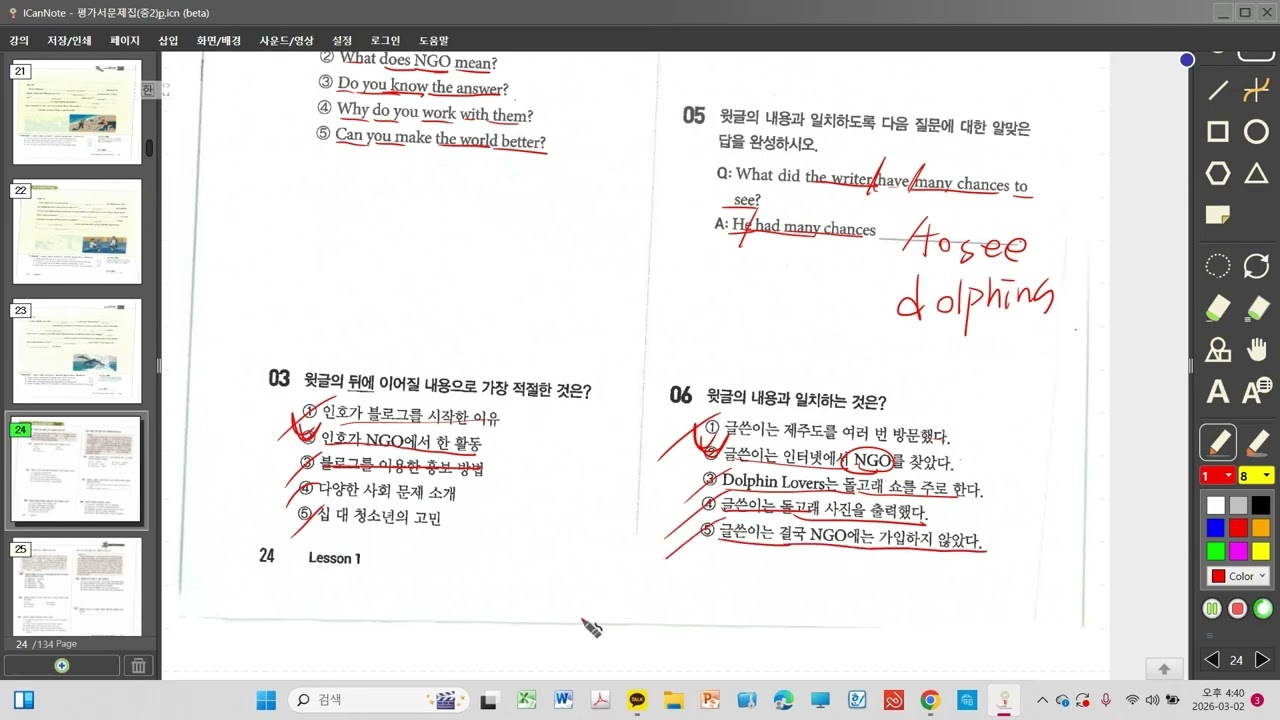 ICanNote - 평가서문제집(중2)p.icn (beta)
강의 저장/인쇄 페이지 삽입 화면/배경 사운드/영상 설정 로그인 도움말
21
22
23
24
25
24 /134 Page
② What does NGO mean?
③ Do you know the answer?
④ Why do you work with them?
⑤ Can you make the world better?
03 윗글의 뒤에 이어질 내용으로 가장 적절한 것은?
① 인호가 블로그를 시작한 이유
② 인호가 NGO에서 한 활동
③ 블로그를 이용한 홍보 방법
④ 다양한 사회 문제 소개
⑤ 십 대 청소년의 고민
24 Lesson 1
05 윗글의 내용과 일치하도록 다음 질문에 대한 알맞은
답을 완성하시오.
Q: What did the writer have many chances to
see?
A: He had many chances
to see
dolphins
06 윗글의 내용과 일치하는 것은?
① 글쓴이는 제주도를 여러 번 방문했다.
② 글쓴이는 인터넷에서 NGO를 찾았다.
③ Dolphin Lovers는 돌고래 쇼를 주로 한다.
④ 글쓴이는 돌고래 사진을 출력했다.
⑤ 글쓴이는 결국 NGO에는 가입하지 않았다.
한
A
A
1
8
Color
24
검색
TALK
오후 4:40
2026-03-02
3